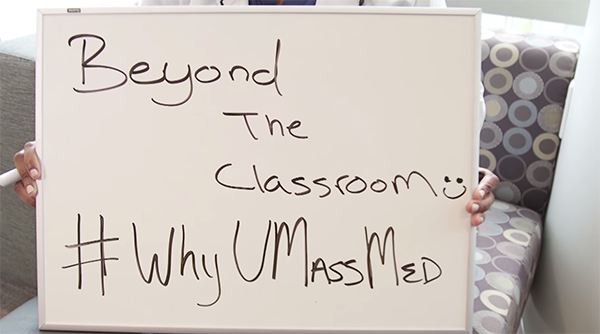 Beyond
The
Classroom
#WhyUMassMed